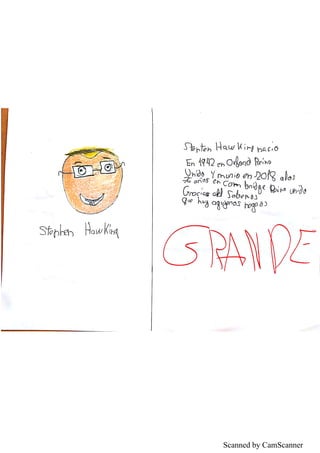 Stephen Hawking
Stephen Hawking nacio
En 1942 en Oxford Reino
Unido y murio en 2018 alos
76 años en Cambridge Reino unido
Gracias al Sabemos
que hay agujeros negros
GRANDE
Scanned by CamScanner